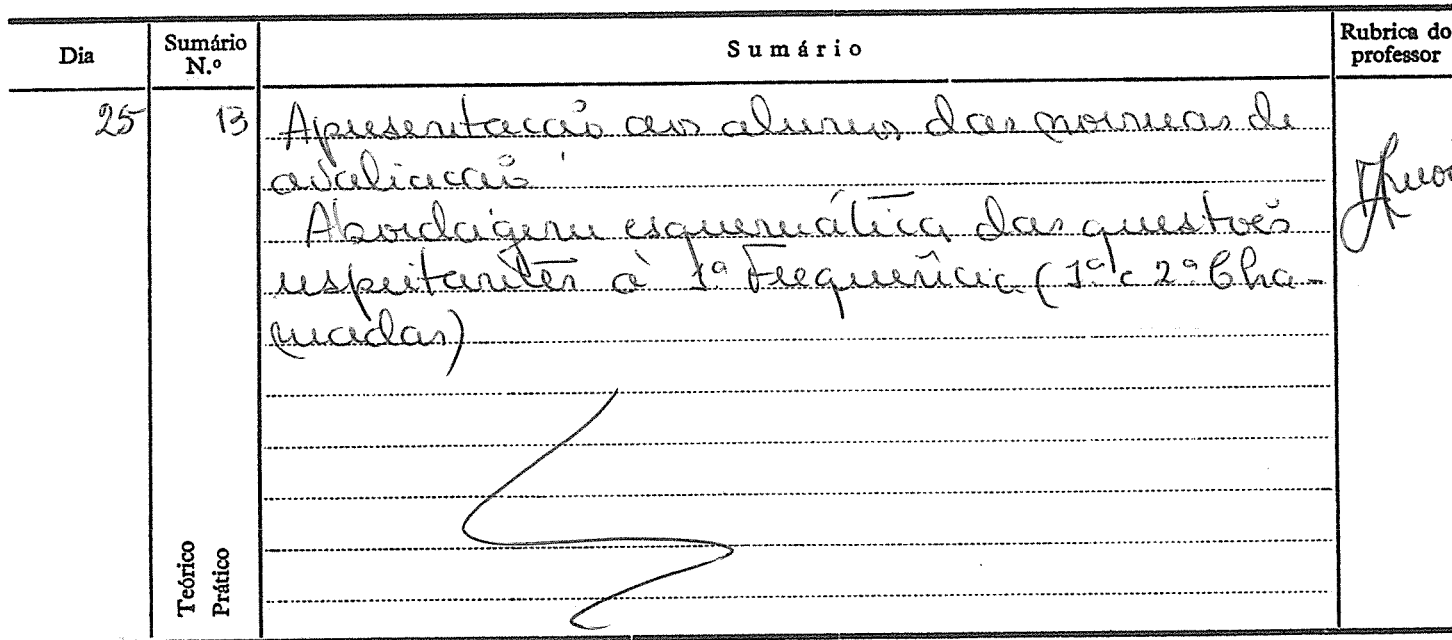 Dia
Sumário N.º
Sumário
Rubrica do professor
25
13
Apresentação aos alunos das normas de
avaliação
Abordagem esquemática das questões
respeitantes à 1ª Frequência (1ª e 2ª Cha-
madas)
Teórico
Prático